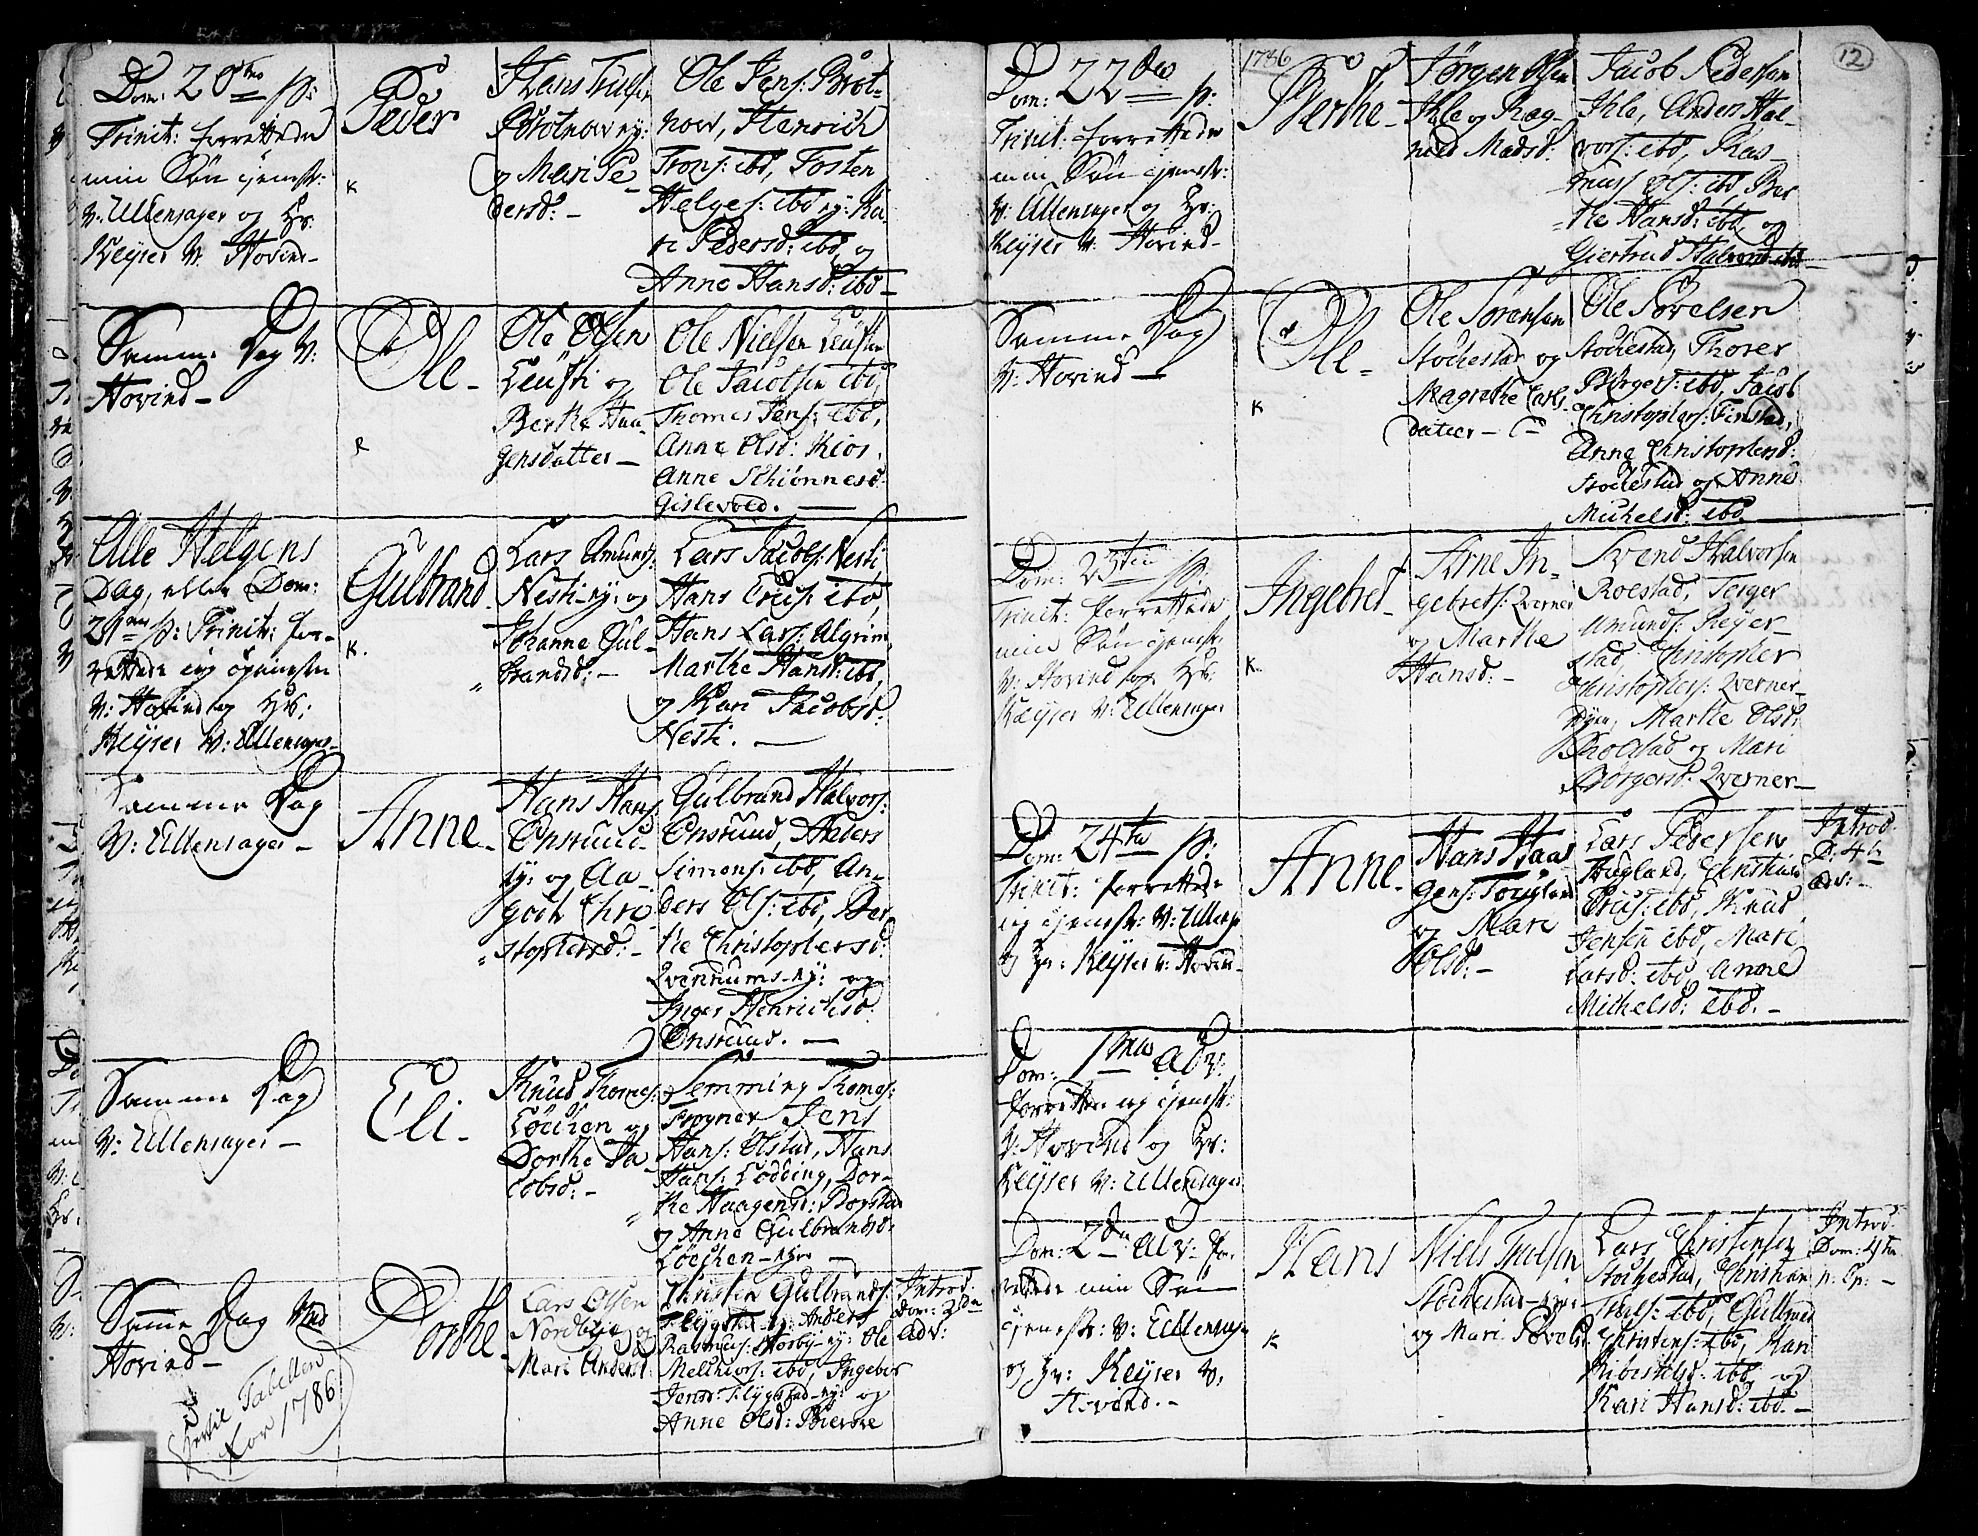 Dom: 20de p:
Trinit: forrettede
min Søn tjenest:
V: Ullensager og Hr:
Keyser V: Hovind-
Peder
K
Hans Truls:
ny:
og Mari Pe-
dersd: -
Ole Jens:
now, Henrich
Trons: ibd, Tosten
Helges: ibd ny: Ka-
ri Pedersd: ibd, og
Anne Hansd: ibd-
Samme Dag V:
Hovind-
Ole-
R
Ole Olsen
og
Berthe Haa-
gensdatter-
Ole Nielsen
Ole Jacobsen ibd,
Thomes Jens: ibd,
Anne Olsd:
Anne
Gislevold. -
Alle Helgens
Dag, eller Dom:
21de p: Trinit: for-
rettede jeg tjenesten
V: Hovind og Hr:
Keyser V: Ullensager-
Gulbrand-
K.
Lars Amunds:
Nesti-ny: og
Johanne Gul-
brandsd: -
Lars Jacobs: Nesti
Hans Truls: ibd,
Hans Lars: Algrim
Marthe Hansd: ibd,
og Kari Jacobsd:
Nesti. -
Samme Dag
V: Ullensager-
Anne-
Hans Hans:
Onsrund-
ny: og Aa-
goth Chri-
stophersd: -
Gulbrand Halvors:
Onsrund, Anders
Simons: ibd, An-
ders Ols: ibd, Ber-
the Christophersd:
Qvernums-ny: og
Inger Henrichsd:
Onsrund. -
Samme Dag
V: Ullensager-
Eli-
Knud Thomes:
Løchen og
Dorthe Ja-
cobsd: -
Lemming Thomes:
Frogner, Jens
Hans: Olstad, Hans
Hans: Lødding, Dor-
the Haagensd: Bogstad
og Anne Gulbrandsd:
Løchen-nyre -
Samme Dag Ved
Hovind-
Dorthe-
Lars Olsen
Nordbye og
Mari Andersd:
Christen Gulbrands:
Flygstad-ny: Anders
Rasmus: Norby-ny: Ole
Melchiors: ibd, Ingebor
Jensd: Flygstad-ny: og
Anne Olsd: Bierore
Introd:
Dom: 2den
Adv:
Tabellen
for 1786
12
1786
Dom: 22de p:
Trinit: forrettede
min Søn tjenest:
V: Ullensager og Hr:
Keyser V: Hovind-
Berthe-
Jørgen Olsen
Ihle og Rag-
nild Madsd:
Jacob Pedersen
Ihle, Anders Hal-
vors: ibd, Ras-
mus Ols: ibd Ber-
the Hansd: ibd, og
Giertrud Halvorsd: ibd-
Samme Dag
V: Hovind-
Ole-
K
Ole Sørensen
Stochestad og
Magrethe Carls-
datter-
Ole Povelsen
Stochestad, Thorer
Børgers: ibd, Jacob
Christophers: Finstad,
Anne Christophersd:
Stochestad og Anne
Michelsd: ibd.
Dom: 23tie p:
Trinit: forrettede
min Søn tjenest:
V: Hovind og Hr:
Keyser V: Ullensager
Ingebret-
K.
Arne In-
gebrets: Qverner
og Marthe
Hansd: -
Svend Halvorsen
Roestad, Terger
Amunds: Reyer-
stad, Christopher
Christophers: Qverner-
Byen, Marthe Olsd:
Rolstad og Mari
Børgersd: Qverner-
Dom: 24de p:
Trinit: forrettede
jeg tjenest: V: Ullens:
og Hr: Keyser V: Hovind-
Anne-
Hans Haa-
gens: Haugland
og Mari
Olsd: -
Lars Pedersen
Haugland, Christian
Truls: ibd, Knud
Jensen ibd, Mari
Larsd: ibd, Anne
Michelsd: ibd. -
Introd:
D: 4de
Adv: -
Dom: 1ma Adv:
forrettede jeg tjenest:
V: Hovind og Hr:
Keyser V: Ullensager
Dom: 2da Adv: for-
rettede min Søn
tjenest: V: Ullensager
og Hr: Keyser V:
Hovind. -
Hans
K
Niels Truls:
Stochestad-nyre
og Mari Povelsd:
Lars Christensen
Stochestad, Christian
Truls: ibd, Gulbrand
Christens: ibd, Kari
ibd og
Kari Hansd: ibd. -
Introd:
Dom: 4de
p: Ep: -